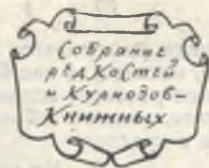 Собрание
рѣдкостей
и курнозов-
книжных